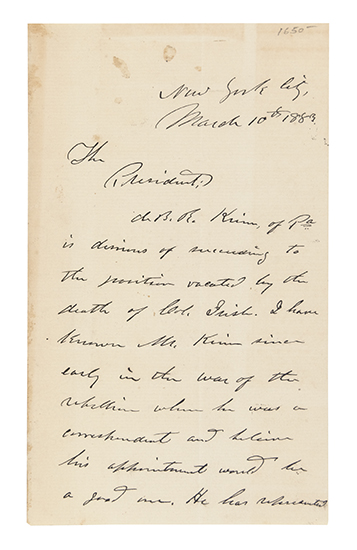 1650
New York City,
March 10th 1883
The
President,
de B. R. Keim, of Pa
is desirous of succeeding to
the position vacated by the
death of Col. Irish. I have
known Mr. Keim since
early in the war of the
rebellion when he was a
correspondent and believe
his appointment would be
a good one. He has represented